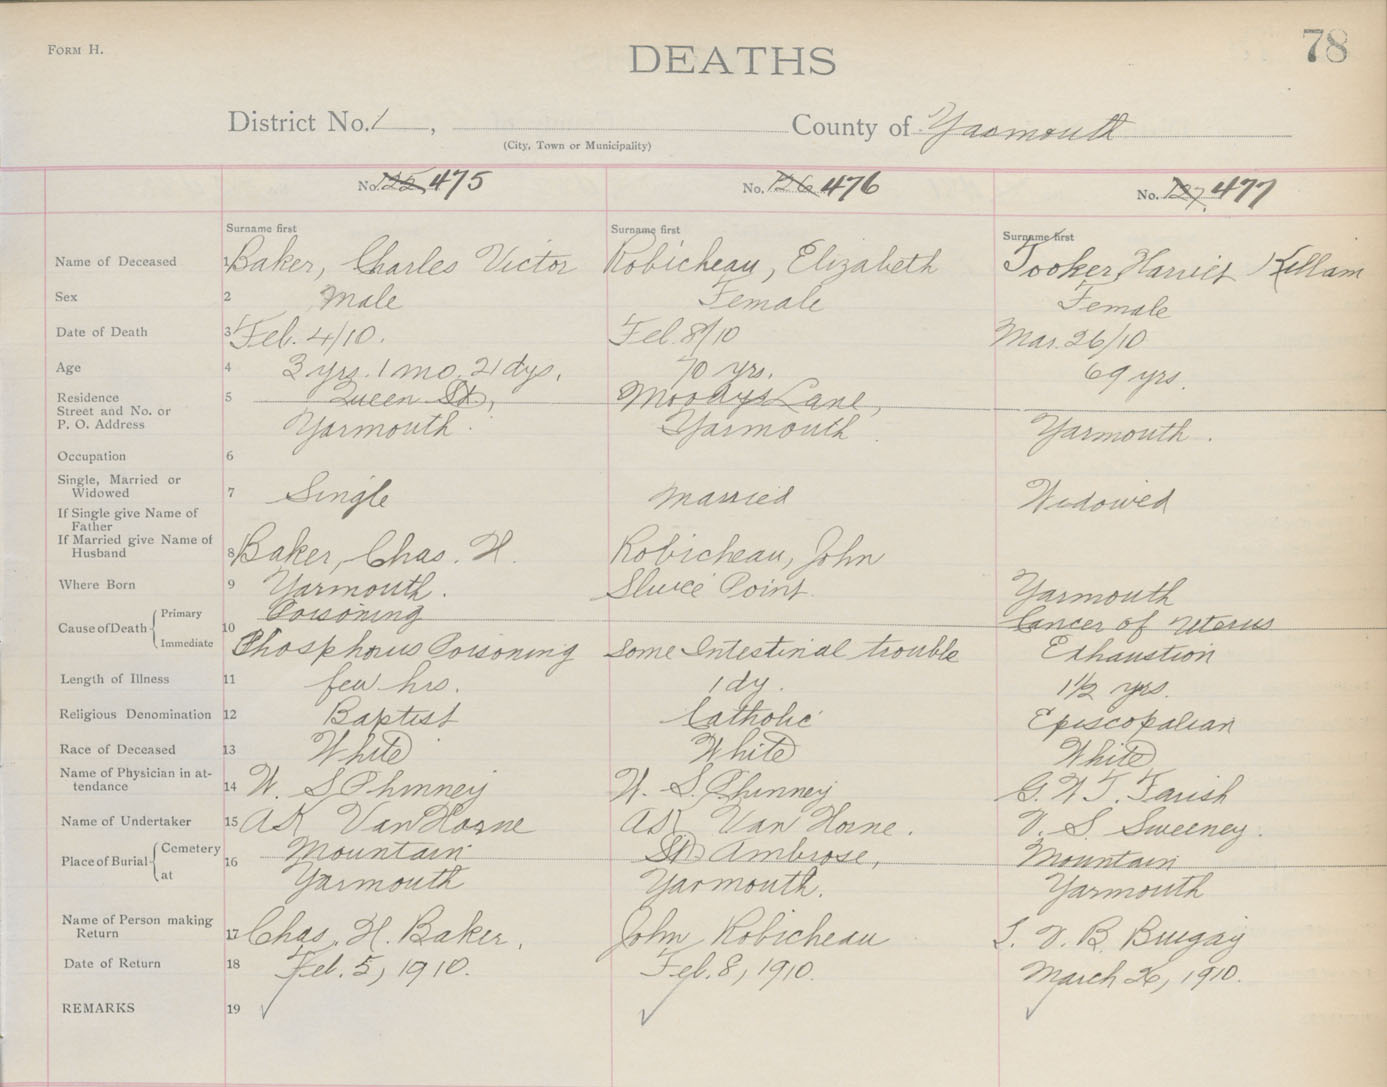 Form H.
DEATHS
78
District No. 1, County of Yarmouth
(City, Town or Municipality)
No. 125, 475 No. 126 476 No. 127, 477
Surname first Surname first Surname first
Name of Deceased 1 Baker, Charles Victor Robicheau, Elizabeth Tooker, Harriet Killam
Sex 2 Male Female Female
Date of Death 3 Feb. 4/10. Feb. 8/10 Mar. 26/10
Age 4 3 yrs. 1 mo. 21 dys. 70 yrs. 69 yrs.
Residence 5 Queen St., Moodys Lane,
Street and No. or
P. O. Address Yarmouth. Yarmouth. Yarmouth.
Occupation 6
Single, Married or
Widowed 7 Single Married Widowed
If Single give Name of
Father
If Married give Name of
Husband 8 Baker, Chas. H. Robicheau, John
Where Born 9 Yarmouth. Sluice Point. Yarmouth
Cause of Death Primary 10 Poisoning Cancer of Uterus
Immediate Phosphorus Poisoning Some Intestinal trouble Exhaustion
Length of Illness 11 few hrs. 1 dy. 1½ yrs.
Religious Denomination 12 Baptist Catholic Episcopalian
Race of Deceased 13 White White White
Name of Physician in at-
tendance 14 W. S. Phinney W. S. Phinney G. W. T. Farish
Name of Undertaker 15 A K Van Horne A K Van Horne. V. S. Sweeney.
Place of Burial Cemetery 16 Mountain St Ambrose, Mountain
at Yarmouth Yarmouth. Yarmouth
Name of Person making
Return 17 Chas. H. Baker, John Robicheau V. B.
Date of Return 18 Feb. 5, 1910. Feb. 8, 1910. March 26, 1910.
REMARKS 19 ✓ ✓ ✓